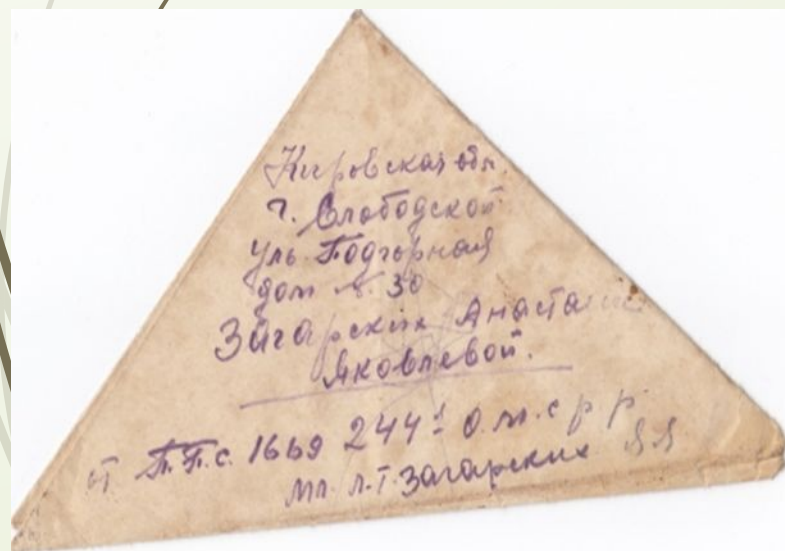 Кировская обл.
г. Слободской
ул. Подгорная
дом № 30
Загарских Анастасии
Яковлевой.
от П.П.С. 1669 244 : о.м.с р р
мл. л-т. Загарских Я Я